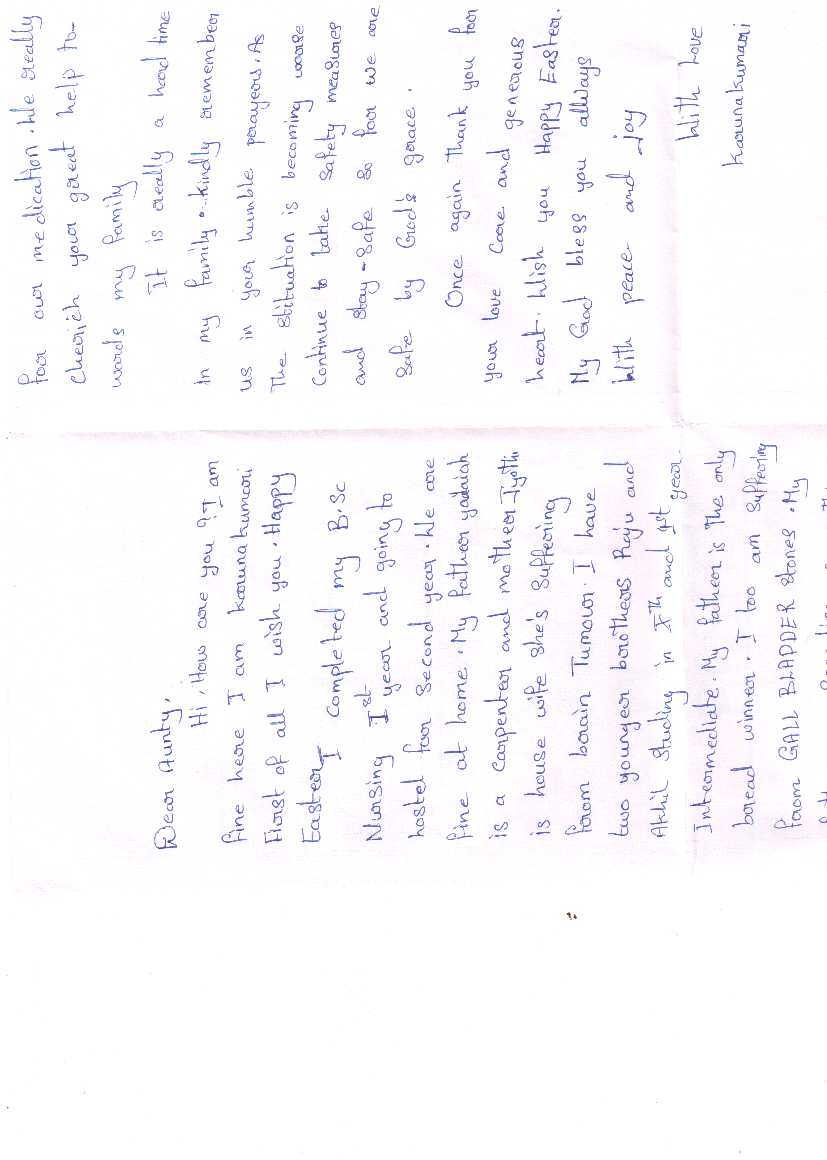 Dear Aunty,
Hi, How are you? I am
fine here I am karunakumari
First of all I wish you. Happy
Easter
I completed my B.Sc
Nursing 1st year and going to
hostel for second year. We are
fine at home. My father yadaiah
is a carpenter and mother Jyothi
is house wife she's suffering
from brain Tumour. I have
two younger brothers Raju and
Akhil studing in Xth and 1st year
Intermediate. My father is the only
bread winner. I too am suffering
from GALL BLADDER stones. My
for our medication. We really
cherich your great help to-
wards my family
It is really a hard time
in my family. kindly remember
us in your humble prayers. As
The stituation is becoming worse
continue to take safety measures
and stay-safe so for we are
safe by God's grace.
Once again thank you for
your love care and generous
heart. Wish you Happy Easter.
My God bless you allways
With peace and Joy
With Love
karunakumari